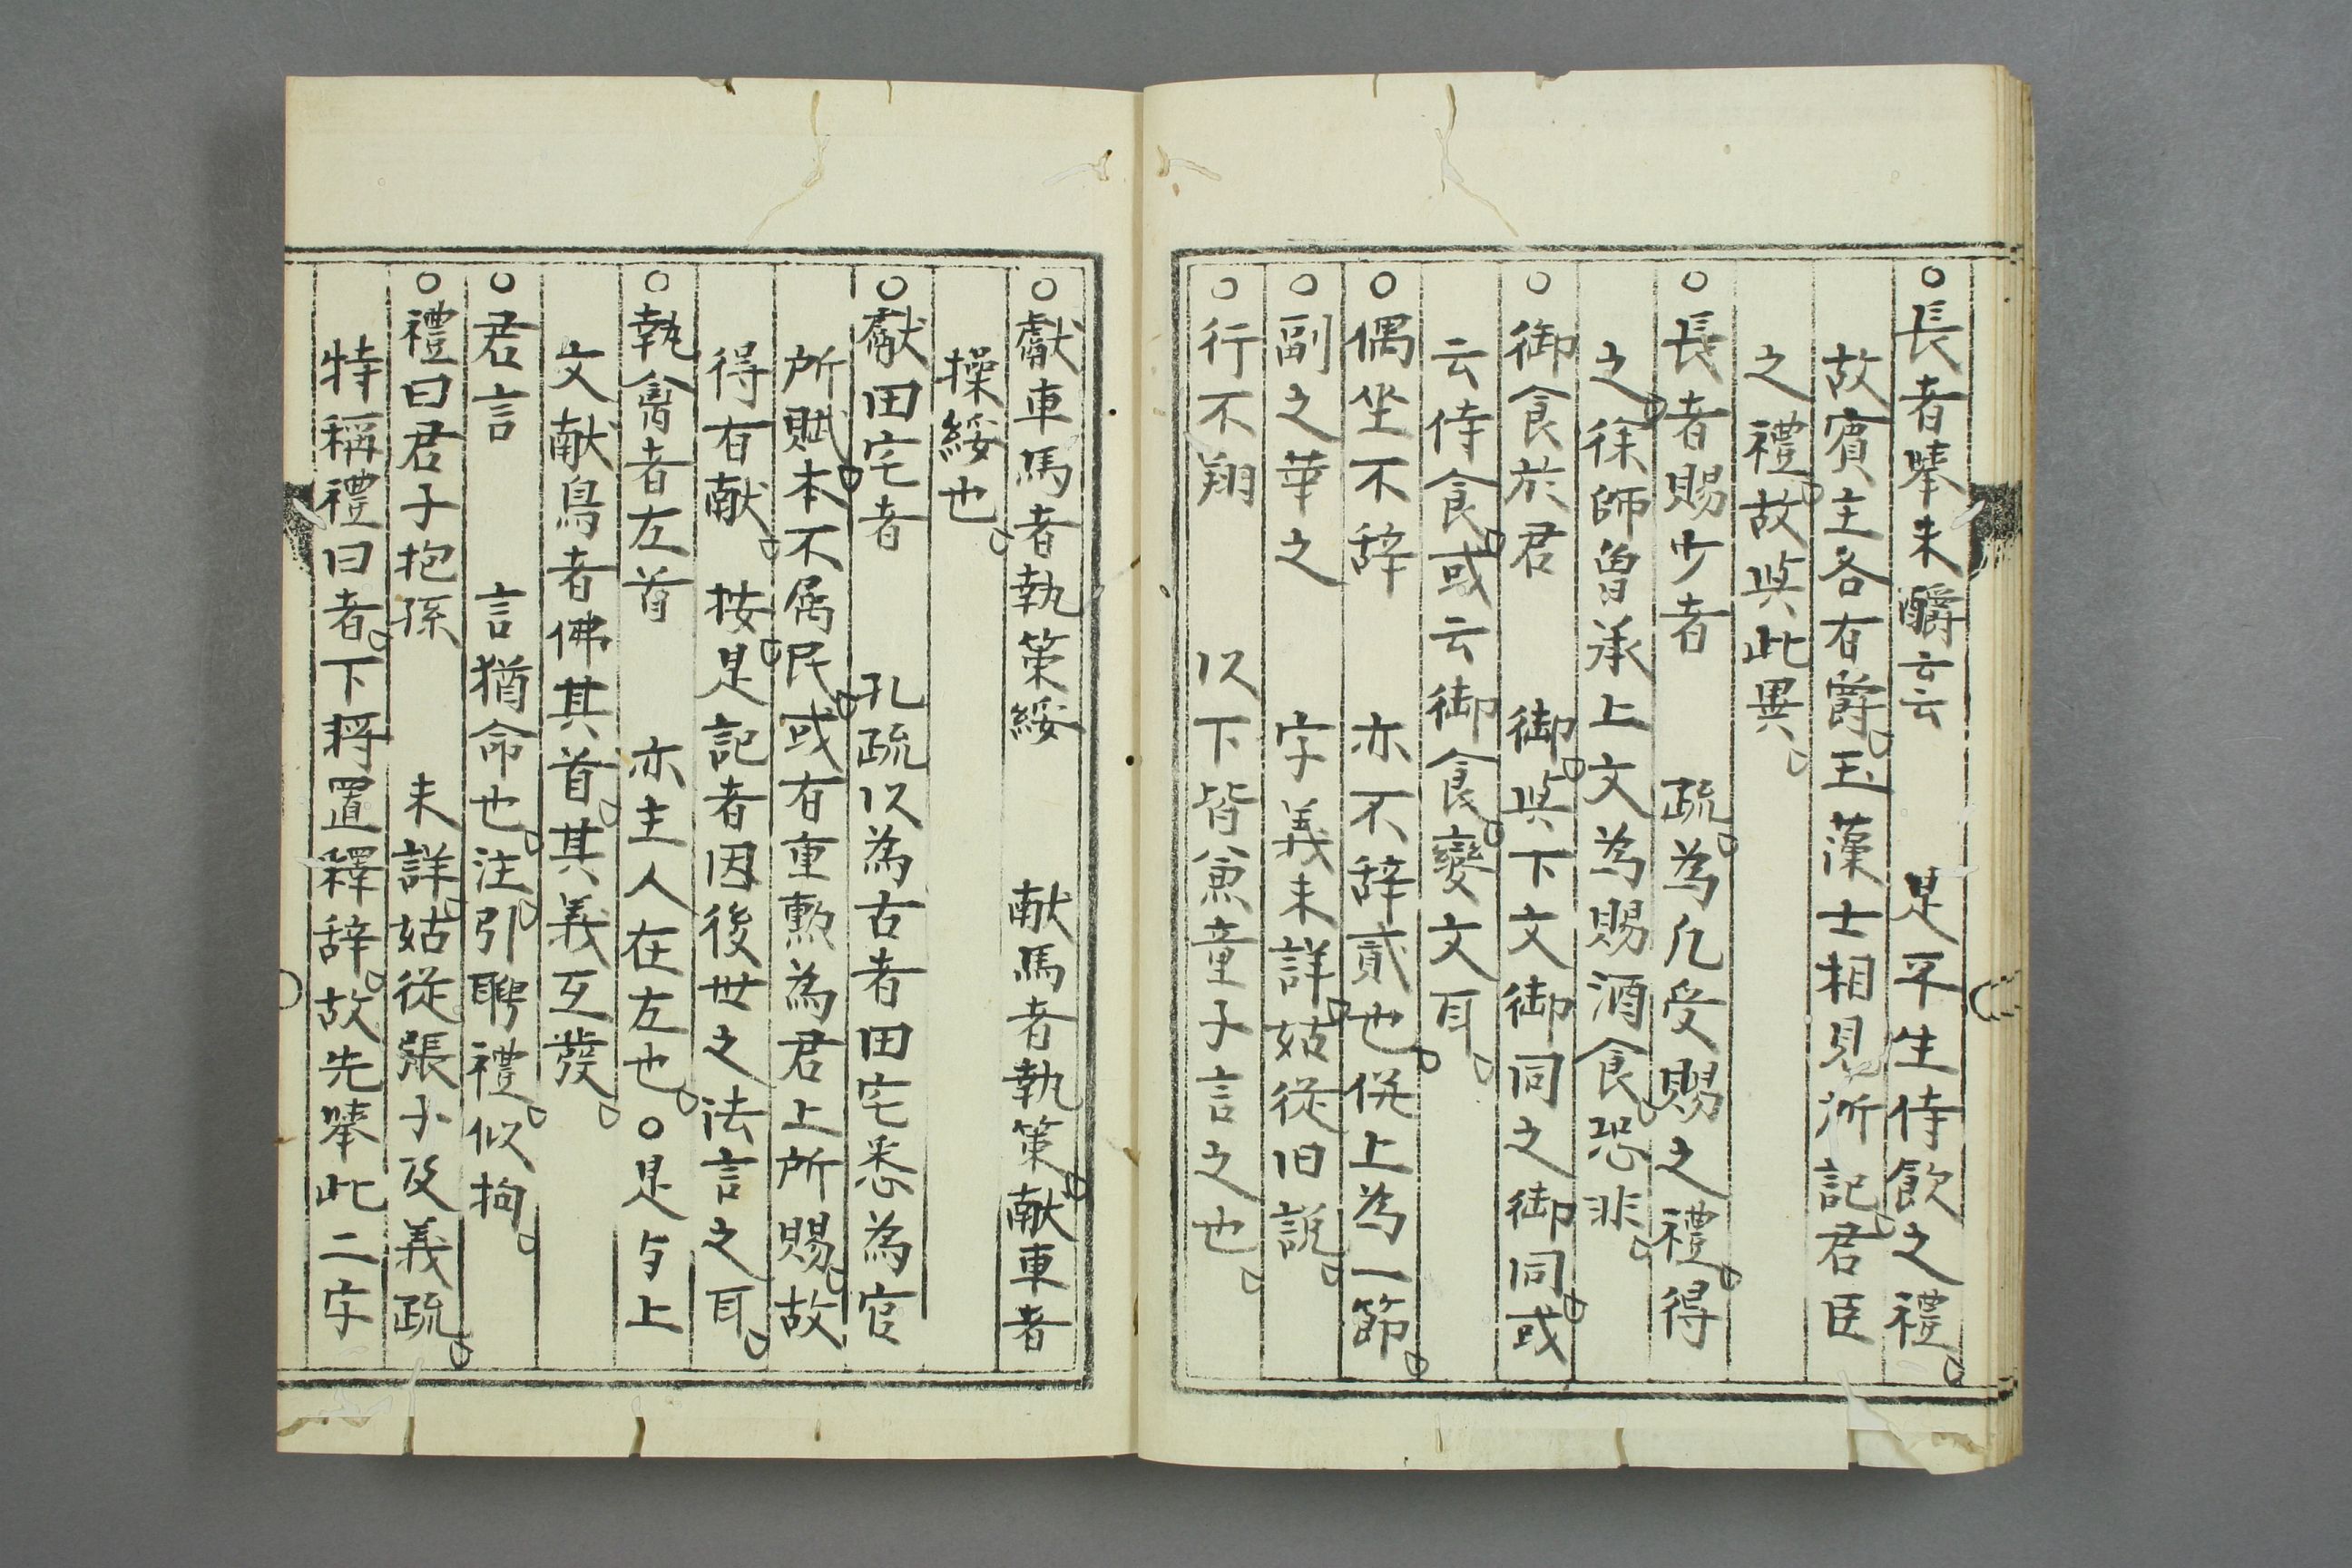 ○長者擧未釂云云　是平生侍飮之禮。
故賓主各有爵。玉藻士相見所記。君臣
之禮。故與此異。
○長者賜少者　疏。為凡受賜之禮。得
之。徐師曾承上文為賜酒食。恐非。
○御食於君　御。與下文御同之御同。或
云侍食。或云御食。變文耳。
○偶坐不辞　亦不辞貳也。併上為一節。
○副之華之　字義未詳。姑從旧說。
○行不翔　以下皆兼童子言之也。
○獻車馬者執策綏　献馬者執策。献車者
操綏也。
○獻田宅者　孔疏以為古者田宅悉為官
所賦。本不属民。或有重勲為君上所賜。故
得有献。按。是記者因後世之法言之耳。
○執禽者左首　亦主人在左也。○是与上
文献鳥者佛其首。其義互發。
○君言　言猶命也。注。引聘禮。似拘。
○禮曰君子抱孫　未詳。姑從張子及義疏。
特稱禮曰者。下將置釋辞。故先擧此二字